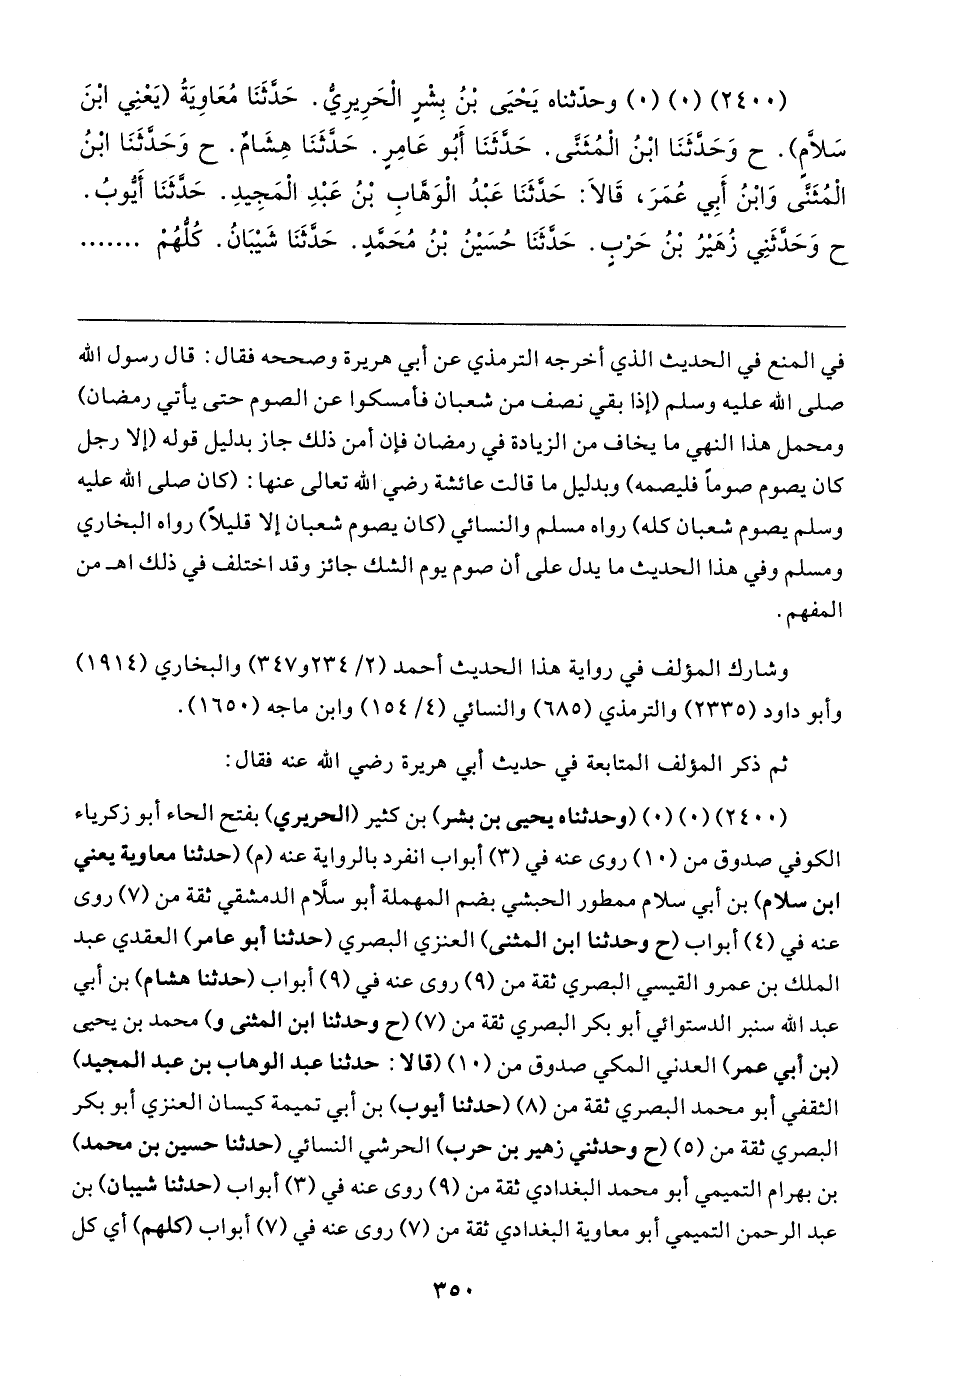 (٢٤٠٠) (٠) (٠) وحدّثناه يَحْيَى بْنُ بِشْرٍ الْحَرِيرِيُّ. حَدَّثَنَا مُعَاوِيَةُ (يَعْنِي ابْنَ
سَلاَّمٍ). ح وَحَدَّثَنَا ابْنُ الْمُثَنَّى. حَدَّثَنَا أَبُو عَامِرٍ. حَدَّثَنَا هِشَامٌ. ح وَحَدَّثَنَا ابْنُ
الْمُثَنَّى وَابْنُ أَبِي عُمَرَ، قَالاَ: حَدَّثَنَا عَبْدُ الْوَهَّابِ بْنُ عَبْدِ الْمَجِيدِ. حَدَّثَنَا أَيُّوبُ.
ح وَحَدَّثَنِي زُهَيْرُ بْنُ حَرْبٍ. حَدَّثَنَا حُسَيْنُ بْنُ مُحَمَّدٍ. حَدَّثَنَا شَيْبَانُ. كُلُّهُمْ .......
في المنع في الحديث الذي أخرجه الترمذي عن أبي هريرة وصححه فقال: قال رسول الله
صلى الله عليه وسلم (إذا بقي نصف من شعبان فأمسكوا عن الصوم حتى يأتي رمضان)
ومحمل هذا النهي ما يخاف من الزيادة في رمضان فإن أمن ذلك جاز بدليل قوله (إلا رجل
كان يصوم صوماً فليصمه) وبدليل ما قالت عائشة رضي الله تعالى عنها: (كان صلى الله عليه
وسلم يصوم شعبان كله) رواه مسلم والنسائي (كان يصوم شعبان إلا قليلاً) رواه البخاري
ومسلم وفي هذا الحديث ما يدل على أن صوم يوم الشك جائز وقد اختلف في ذلك اهـ من
المفهم.
وشارك المؤلف في رواية هذا الحديث أحمد (٢/ ٢٣٤و٣٤٧) والبخاري (١٩١٤)
وأبو داود (٢٣٣٥) والترمذي (٦٨٥) والنسائي (٤/ ١٥٤) وابن ماجه (١٦٥٠).
ثم ذكر المؤلف المتابعة في حديث أبي هريرة رضي الله عنه فقال:
(٢٤٠٠) (٠) (٠) (وحدثناه يحيى بن بشر) بن كثير (الحريري) بفتح الحاء أبو زكرياء
الكوفي صدوق من (١٠) روى عنه في (٣) أبواب انفرد بالرواية عنه (م) (حدثنا معاوية يعني
ابن سلام) بن أبي سلام ممطور الحبشي بضم المهملة أبو سلَّام الدمشقي ثقة من (٧) روى
عنه في (٤) أبواب (ح وحدثنا ابن المثنى) العنزي البصري (حدثنا أبو عامر) العقدي عبد
الملك بن عمرو القيسي البصري ثقة من (٩) روى عنه في (٩) أبواب (حدثنا هشام) بن أبي
عبد الله سنبر الدستوائي أبو بكر البصري ثقة من (٧) (ح وحدثنا ابن المثنى و) محمد بن يحيى
(بن أبي عمر) العدني المكي صدوق من (١٠) (قالا: حدثنا عبد الوهاب بن عبد المجيد)
الثقفي أبو محمد البصري ثقة من (٨) (حدثنا أيوب) بن أبي تميمة كيسان العنزي أبو بكر
البصري ثقة من (٥) (ح وحدثني زهير بن حرب) الحرشي النسائي (حدثنا حسين بن محمد)
بن بهرام التميمي أبو محمد البغدادي ثقة من (٩) روى عنه في (٣) أبواب (حدثنا شيبان) بن
عبد الرحمن التميمي أبو معاوية البغدادي ثقة من (٧) روى عنه في (٧) أبواب (كلهم) أي كل
٣٥٠